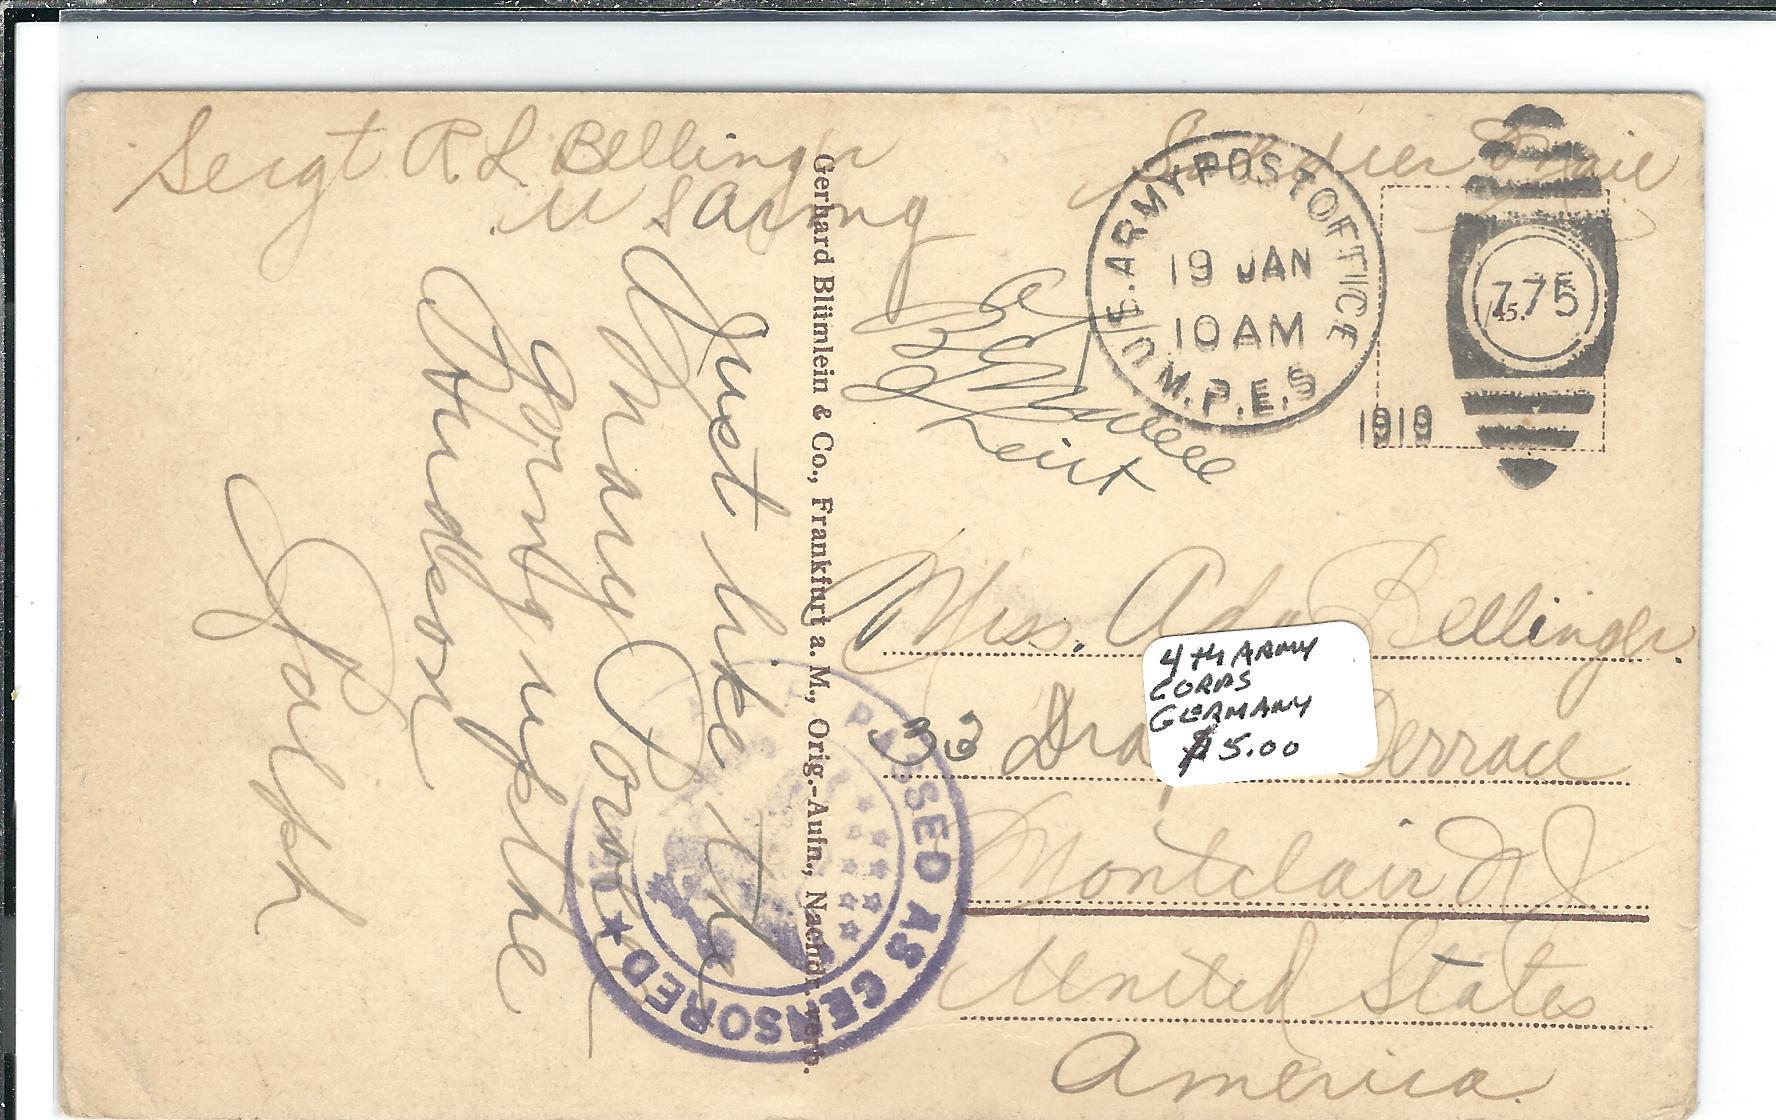 Sergt R L Bellinger
U S Army
Soldier Mail
U.S. ARMY POST OFFICE
19 JAN
10 AM
M.P.E.S
1919
775
1/45.
Lieut
Just like the
Mary Powell
going up the
Hudson
Ralph
Gerhard Blümlein & Co., Frankfurt a. M., Orig.-Aufn., Nachdr. verb.
PASSED AS CENSORED
Miss. Ada Bellinger.
32 Terrace
Montclair N J
United States
America
4TH ARMY
CORPS
GERMANY
$5.00